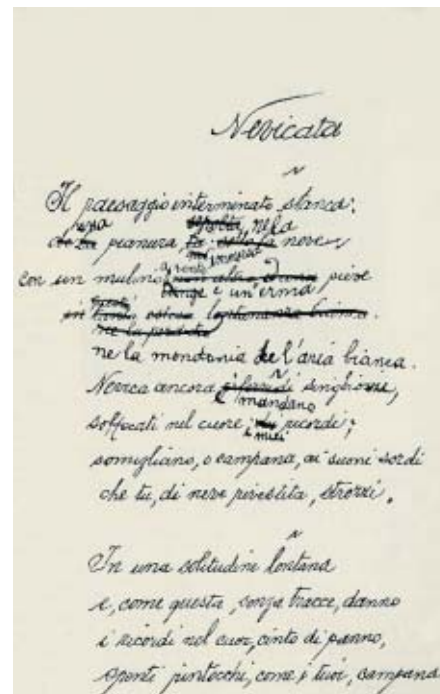 Nevicata
Il paesaggio interminato stanca:
una sepolta, ne la
pianura neve,
con un mulino a vento pieve
lunge e un'erma
ne la mondania de l'aria bianca.
Nevica ancora e singhiozzi,
mandano
soffocati nel cuore, i ricordi;
miei
somigliano, o campana, ai suoni sordi
che tu, di neve rivestita, strozzi.
In una solitudine lontana
e, come questa, senza tracce, danno
i ricordi nel cuor, cinto di panno,
spenti rintocchi, come i tuoi, campana